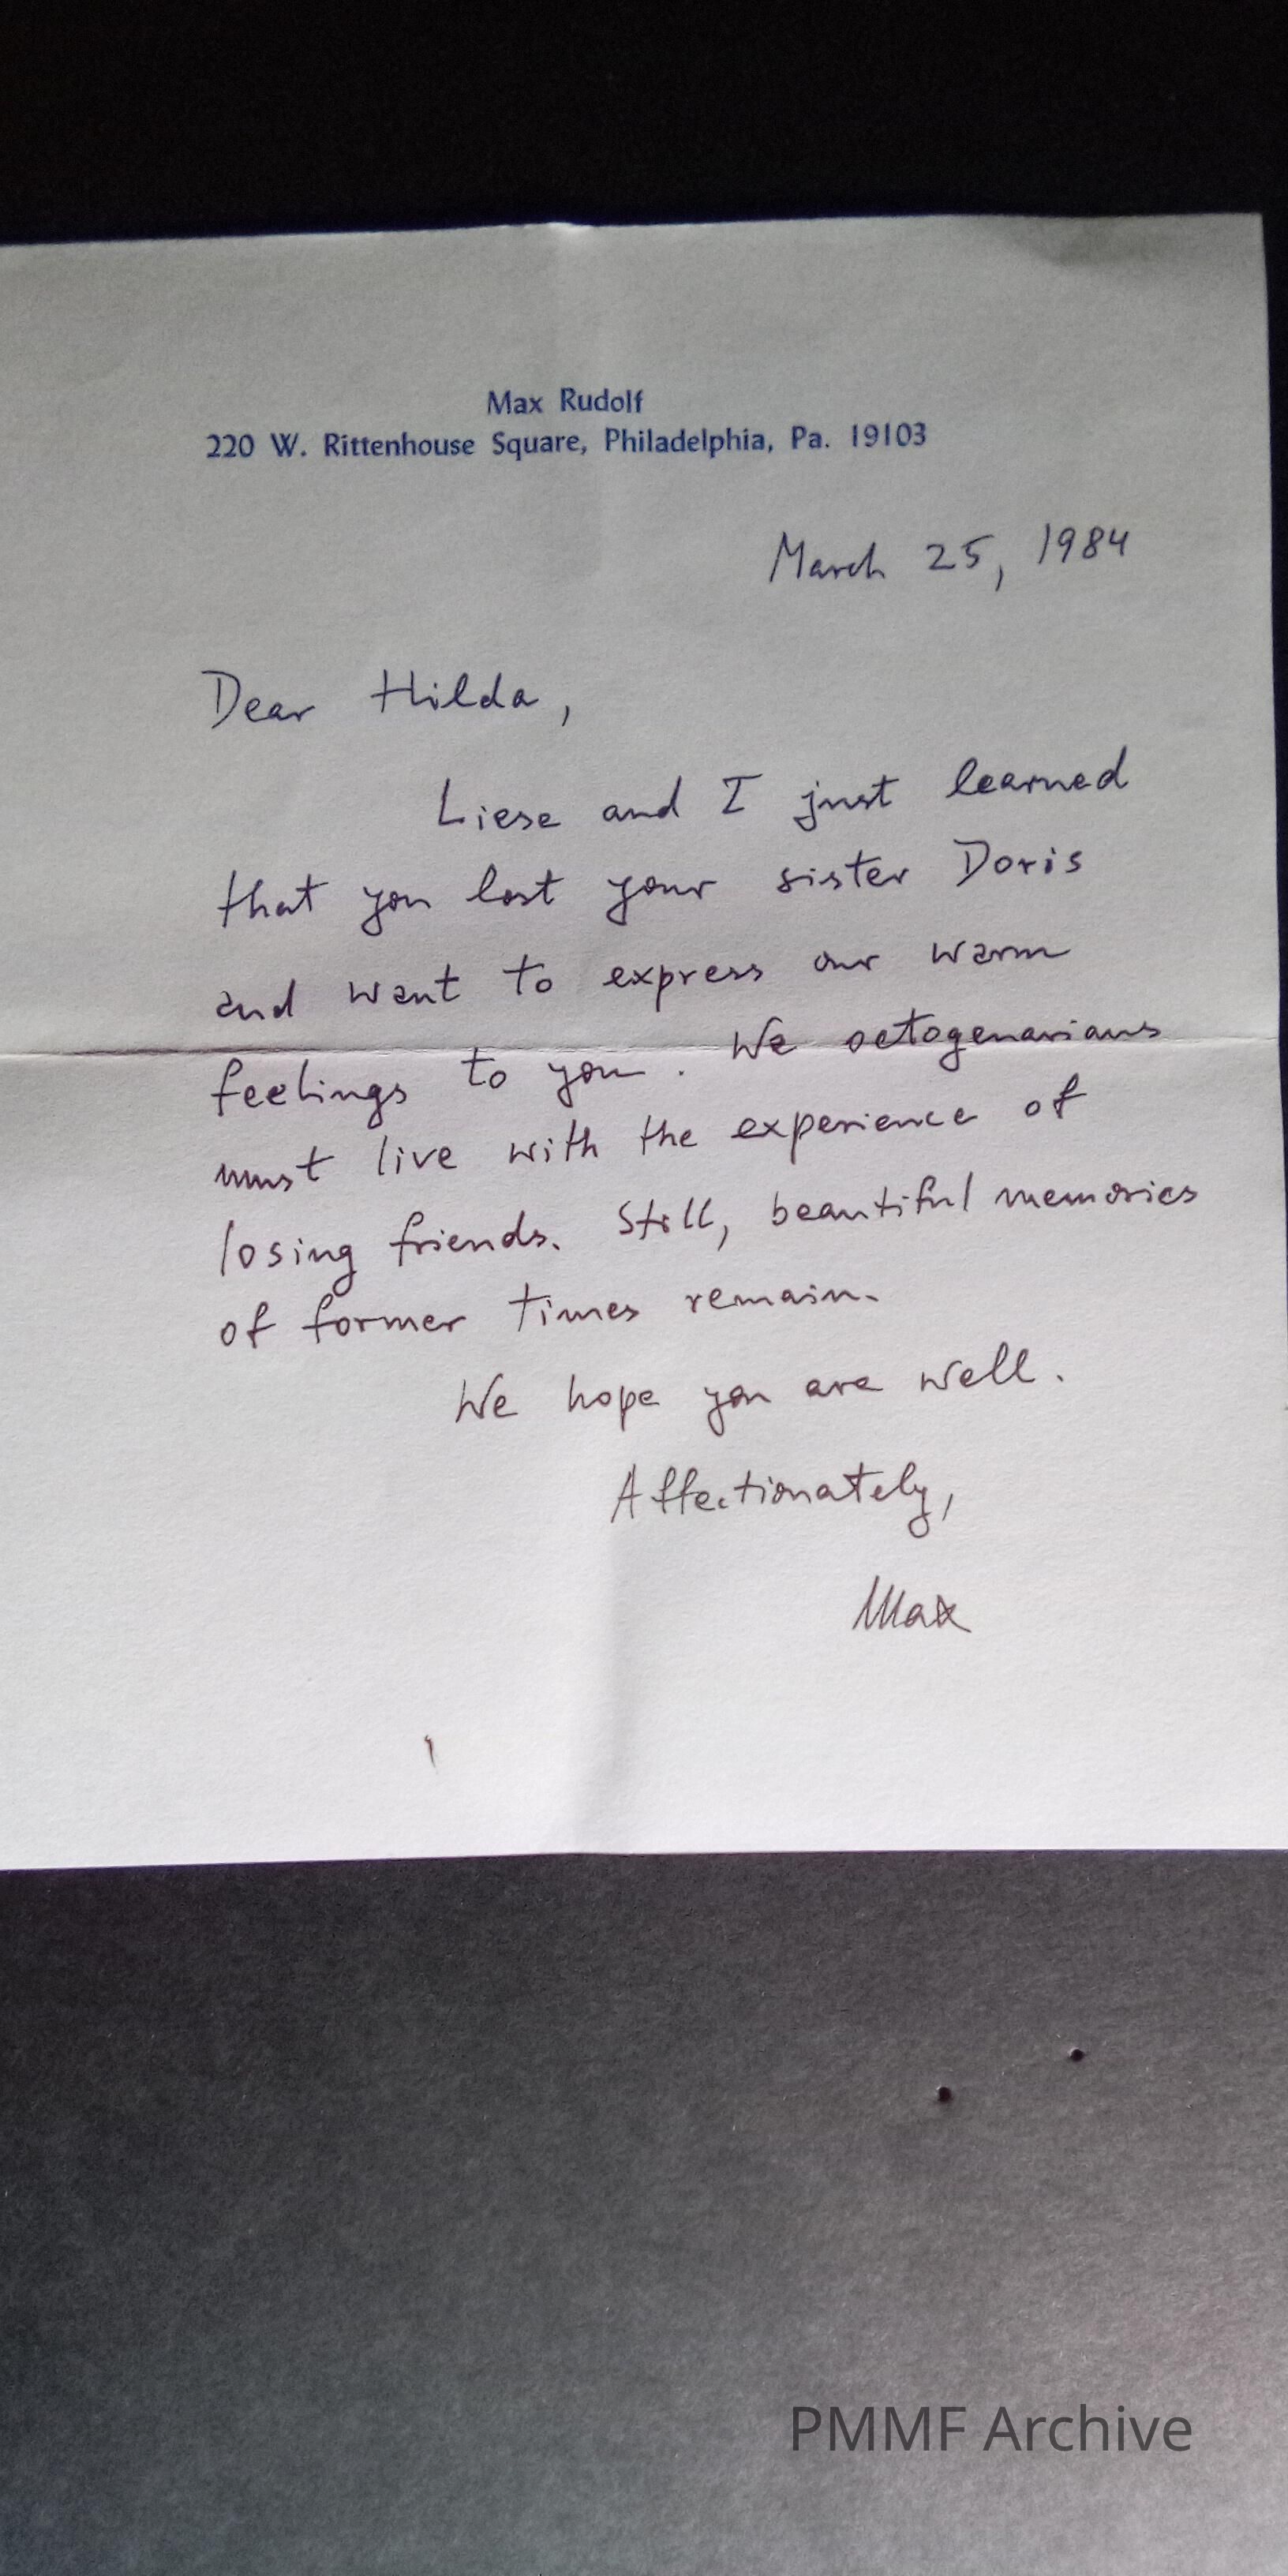 Max Rudolf
220 W. Rittenhouse Square, Philadelphia, Pa. 19103
March 25, 1984
Dear Hilda,
Liese and I just learned
that you lost your sister Doris
and want to express our warm
feelings to you. We octogenarians
must live with the experience of
losing friends. Still, beautiful memories
of former times remain.
We hope you are well.
Affectionately,
Max
PMMF Archive